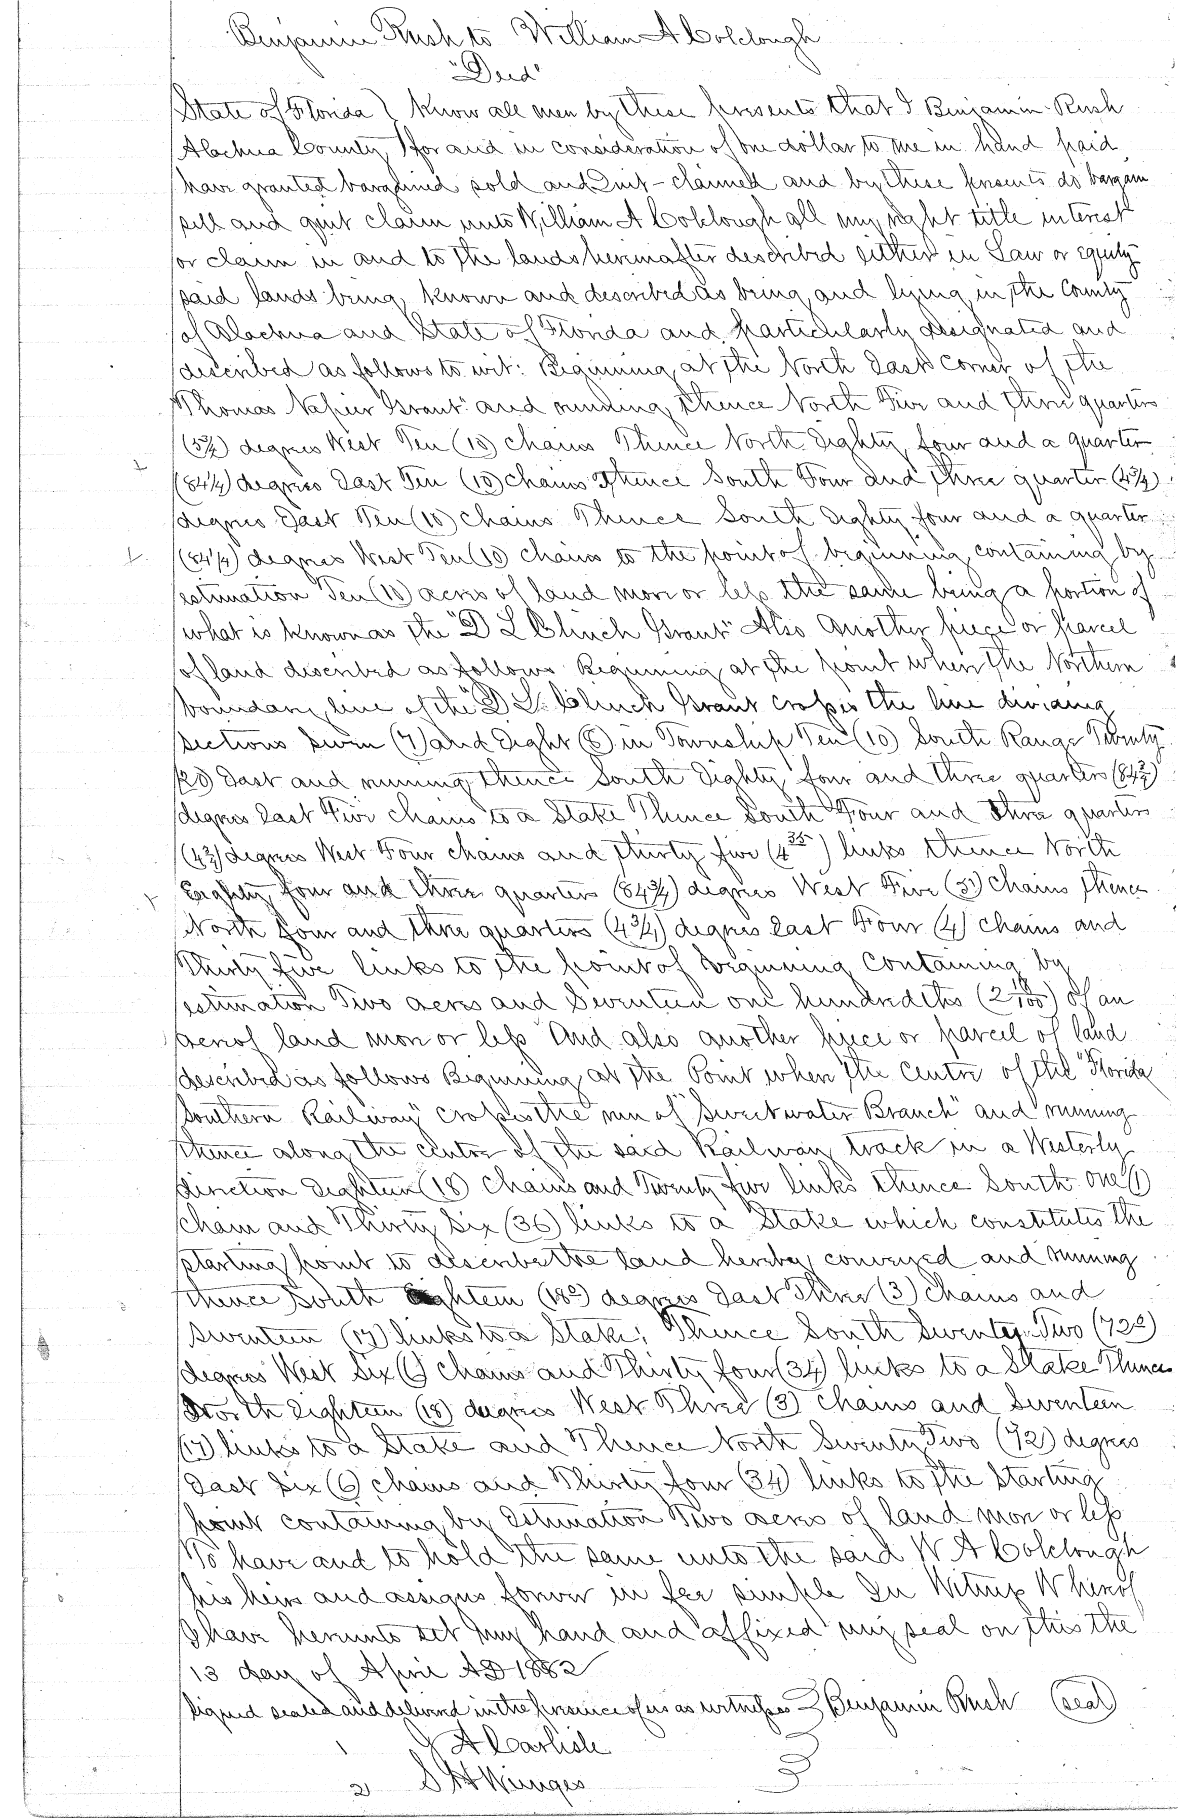 Benjamin Rush to William A Colclough
"Deed"
State of Florida } Know all men by these presents that I Benjamin Rush
Alachua County } for and in consideration of one dollar to me in hand paid
have granted bargained sold and Quit-claimed and by these presents do bargain
sell and quit claim unto William A Colclough all my right title interest
or claim in and to the lands hereinafter described either in Law or Equity
said lands being known and described as being and lying in the County
of Alachua and State of Florida and particularly designated and
described as follows to wit: Beginning at the North East corner of the
Thomas Napier "Grant" and running thence North Five and three quarters
(5¾) degrees West Ten (10) chains Thence North Eighty four and a quarter
(84¼) degrees East Ten (10) chains thence South Four and three quarter (4¾)
degrees East Ten (10) chains Thence South Eighty four and a quarter
(84¼) degrees West Ten (10) chains to the point of beginning containing by
estimation Ten (10) acres of land more or less the same being a portion of
what is known as the "D L Clinch Grant" Also another piece or parcel
of land described as follows Beginning at the point where the Northern
boundary line of the "D L Clinch Grant crosses the line dividing
sections Seven (7) and Eight (8) in Township Ten (10) South Range Twenty
(20) East and running thence South Eighty four and three quarters (84¾)
degrees East Five chains to a Stake Thence South Four and three quarters
(4¾) degrees West Four chains and thirty five (4 35) links thence North
Eighty four and three quarters (84¾) degrees West Five (5) chains thence
North four and three quarters (4¾) degrees East Four (4) chains and
Thirty five links to the point of beginning containing by
estimation Two acres and Seventeen one hundredths (2 17/100) of an
acre of land more or less And also another piece or parcel of land
described as follows Beginning at the Point where the centre of the "Florida
Southern Railway" crosses the run of "Sweetwater Branch" and running
thence along the centre of the said Railway track in a Westerly
direction Eighteen (18) Chains and Twenty five links thence South one (1)
chain and Thirty Six (36) links to a Stake which constitutes the
starting point to describe the land hereby conveyed and running
thence South Eighteen (18°) degrees East Three (3) chains and
seventeen (17) links to a Stake; Thence South Seventy Two (72°)
degrees West Six (6) chains and Thirty four (34) links to a Stake Thence
North Eighteen (18) degrees West Three (3) chains and Seventeen
(17) links to a Stake and Thence North Seventy Two (72) degrees
East Six (6) chains and Thirty four (34) links to the Starting
point containing by Estimation Two acres of land more or less
To have and to hold the same unto the said W A Colclough
his heirs and assigns forever in fee simple In Witness Whereof
I have hereunto set my hand and affixed my seal on this the
13 day of April AD 1882
Signed sealed and delivered in the presence of us as witnesses } Benjamin Rush (seal)
1 J A Carlisle
2 S H Wienges